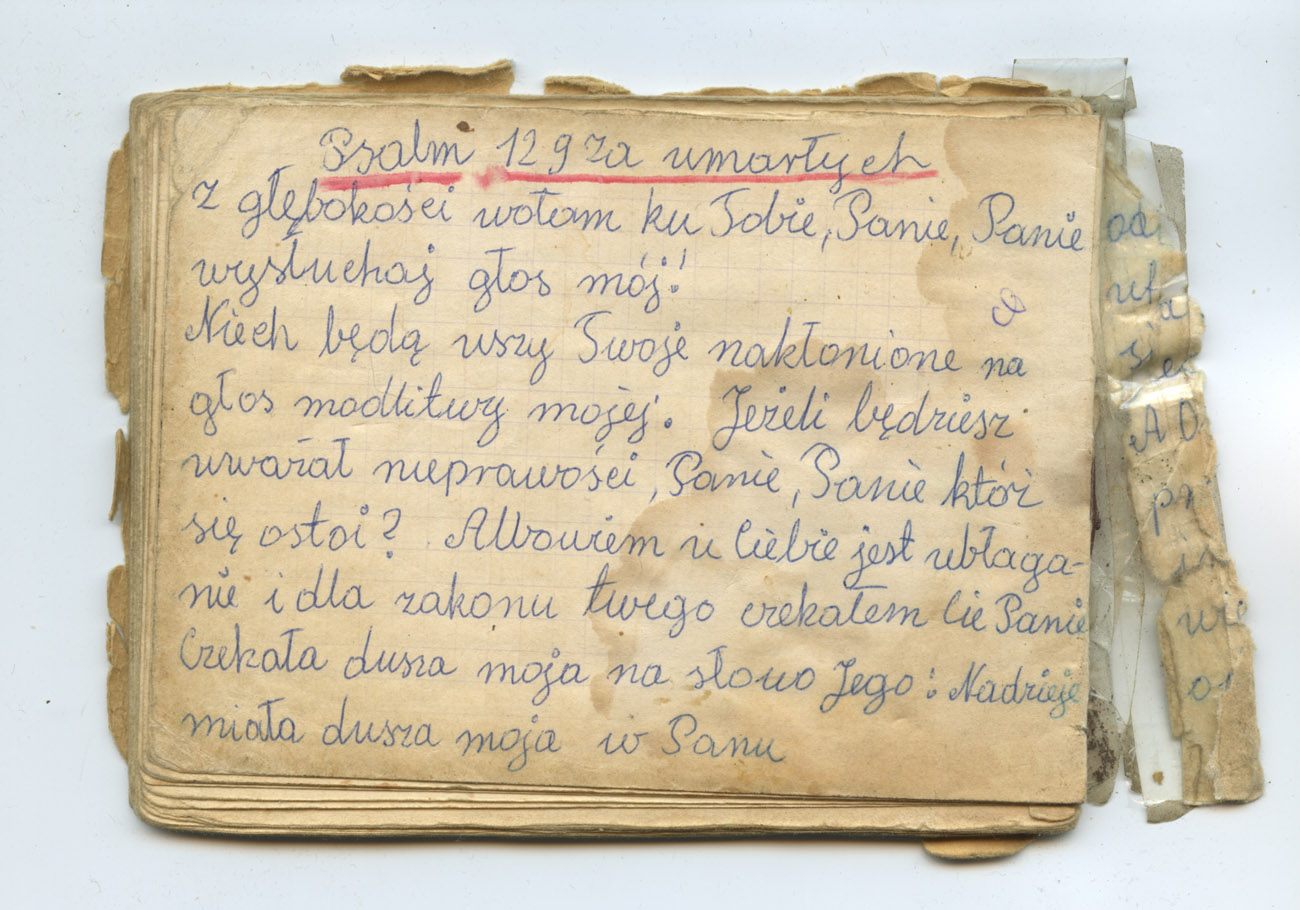 Psalm 129 za umarłych
z głębokości wołam ku Tobie, Panie, Panie
wysłuchaj głos mój!
Niech będą uszy Twoje nakłonione na
głos modlitwy mojej. Jeżeli będziesz
uważał nieprawości, Panie, Panie któż
się ostoi? Albowiem u Ciebie jest ubłaga-
nie i dla zakonu twego czekałem Cie Panie
Czekała dusza moja na słowo Jego: Nadzieje
miała dusza moja w Panu